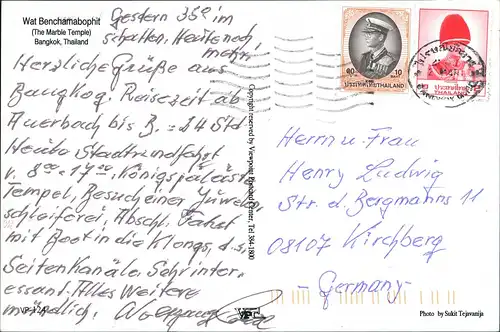 Wat Benchamabophit
(The Marble Temple)
Bangkok, Thailand
Gestern 35° im
Schatten, Heute noch
mehr!
Herzliche Grüße aus
Bangkog. Reisezeit ab
Auerbach bis B. = 24 Std
Heute Stadtrundfahrt
v. 8⁰⁰-17⁰⁰, Königspaläste
Tempel, Besuch einer Juwelen
schleiferei, Abschl. Fahrt
mit Boot in die Klongs, d.s.
Seitenkanäle. Sehr inter-
essant. Alles Weitere
mündlich. Wolfgang
Copyright reserved by Viewpoint Postcard Center, Tel 394-1800
๑๐ 10
ประเทศไทย THAILAND
ประเทศไทย
THAILAND
Herrn u. Frau
Henry Ludwig
Str. d. Bergmanns 11
08107 Kirchberg
- Germany -
Photo by Sukit Tejavanija